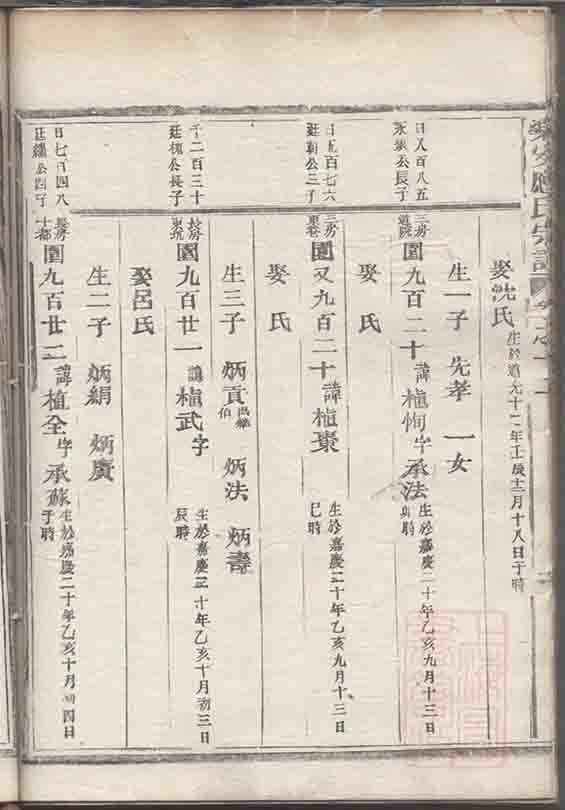 應氏宗譜
娶沈氏
生於道光十二年壬辰十二月十八日子時
生一子 先孝 一女
日八百八五
永 公長子
三房
園九百二十 諱植恂 字承法
生於嘉慶二十年乙亥九月十三日
時
娶 氏
日五百七六
廷 公三子
三房
園又九百二十 諱植棗
生於嘉慶二十年乙亥九月十三日
巳時
娶 氏
生三子 炳貢 炳法 炳壽
千二百三十
廷槐公長子
園九百廿一 諱植武 字
生於嘉慶二十年乙亥十月初三日
辰時
娶呂氏
生二子 炳絹 炳廣
日七百四八
廷 公四子
長房
十都
園九百廿二 諱植全 字承蘇
生於嘉慶二十年乙亥十月初四日
子時